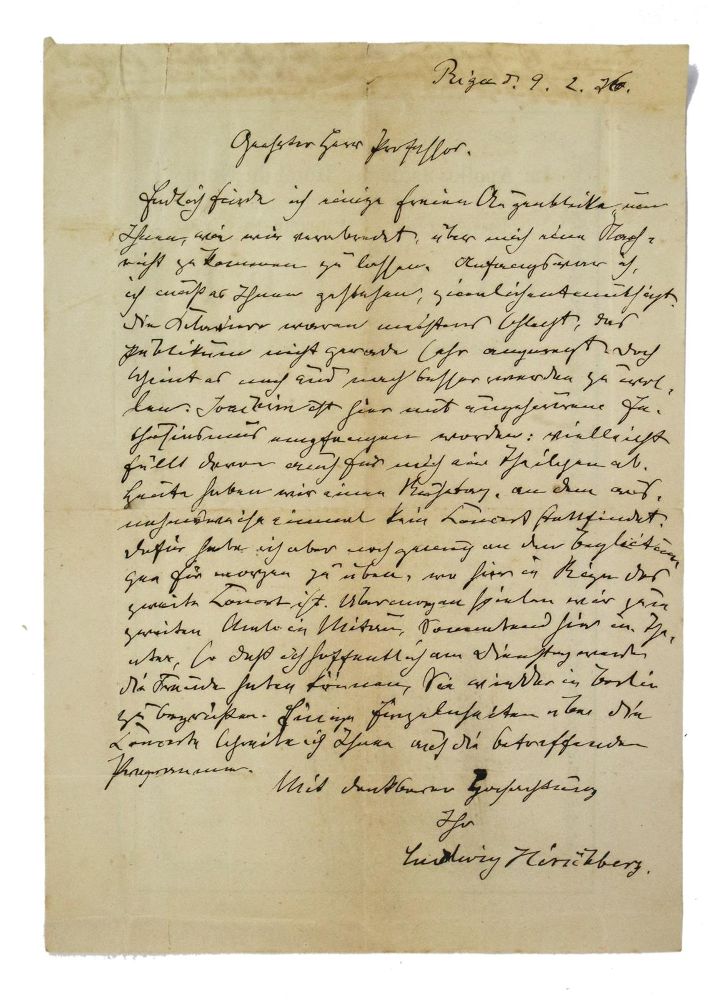 Riga d. 9. 2. 26.
Geehrter Herr Professor.
Endlich finde ich einige freien Augenblicke, um
Ihnen, wie wir verabredet, über mich eine Nach-
richt zukommen zu lassen. Anfangs war ich,
ich muß es Ihnen gestehen, ziemlich entmuthigt.
Die Klaviere waren meistens schlecht, das
Publikum nicht gerade sehr angeregt. Doch
scheint es nach und nach besser werden zu wol-
len. Joachim ist hier mit ungeheurem En-
thusiasmus empfangen worden: vielleicht
fällt davon auch für mich ein Theilchen ab.
Heute haben wir einen Ruhetag, an dem aus-
nahmsweise einmal kein Concert stattfindet.
Dafür habe ich aber noch genug an den Begleitun
gen für morgen zu üben, wo hier in Riga das
zweite Concert ist. Übermorgen spielen wir zum
zweiten Male in Mitau, Sonnabend hier im Thea-
ter, so daß ich hoffentlich am Dienstag werde
die Freude haben können, Sie wieder in Berlin
zu begrüßen. Einige Einzelnheiten über die
Concerte schreibe ich Ihnen auf die betreffenden
Programme.
Mit dankbarer Hochachtung
Ihr
Ludwig Hirschberg.